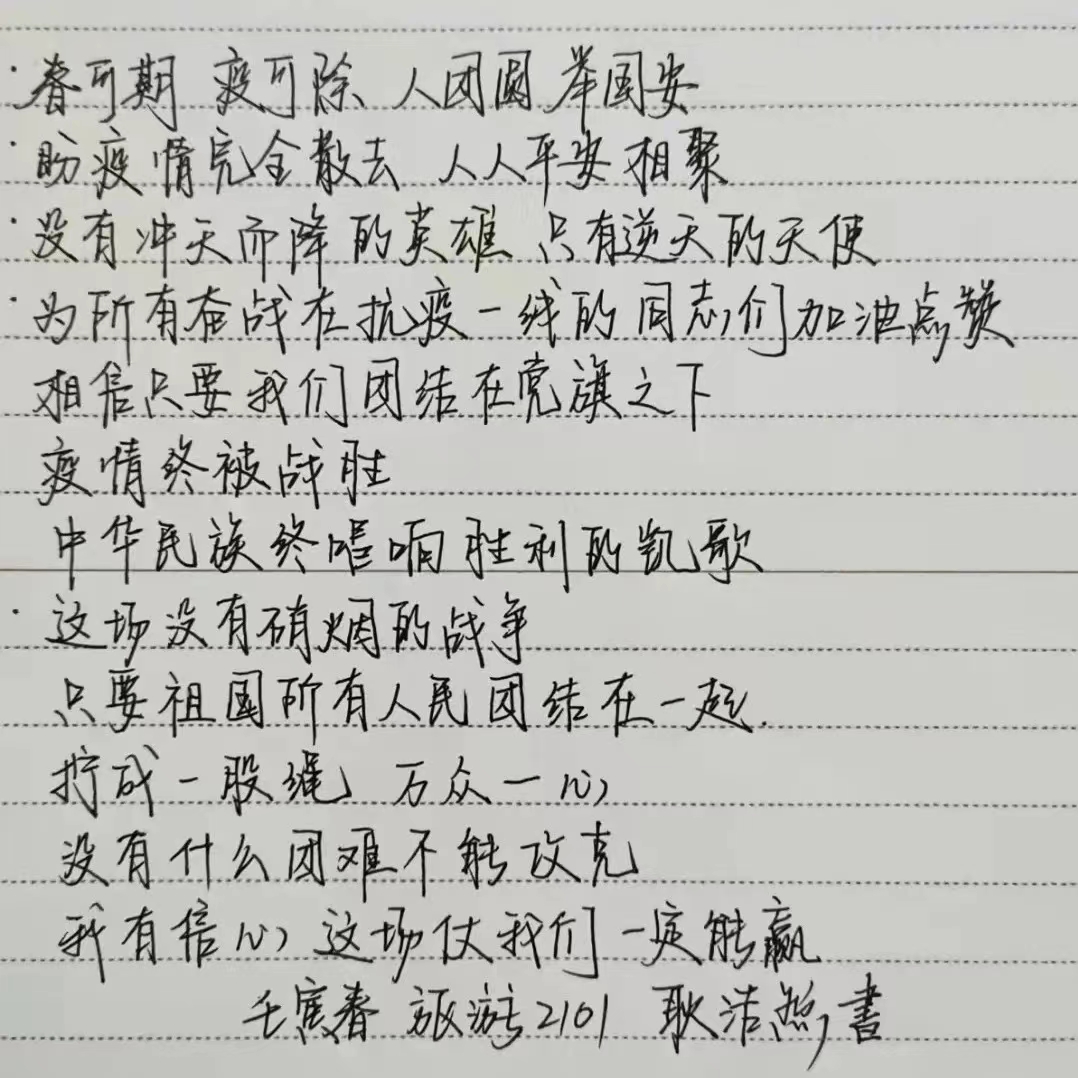 ·春可期 疫可除 人团圆 举国安
·盼疫情完全散去 人人平安相聚
·没有冲天而降的英雄 只有逆天的天使
·为所有奋战在抗疫一线的同志们加油点赞
相信只要我们团结在党旗之下
疫情终被战胜
中华民族终唱响胜利的凯歌
·这场没有硝烟的战争
只要祖国所有人民团结在一起.
拧成一股绳 万众一心
没有什么团难不能攻克
我有信心 这场仗我们一定能赢
壬寅春 旅游2101 耿浩然書